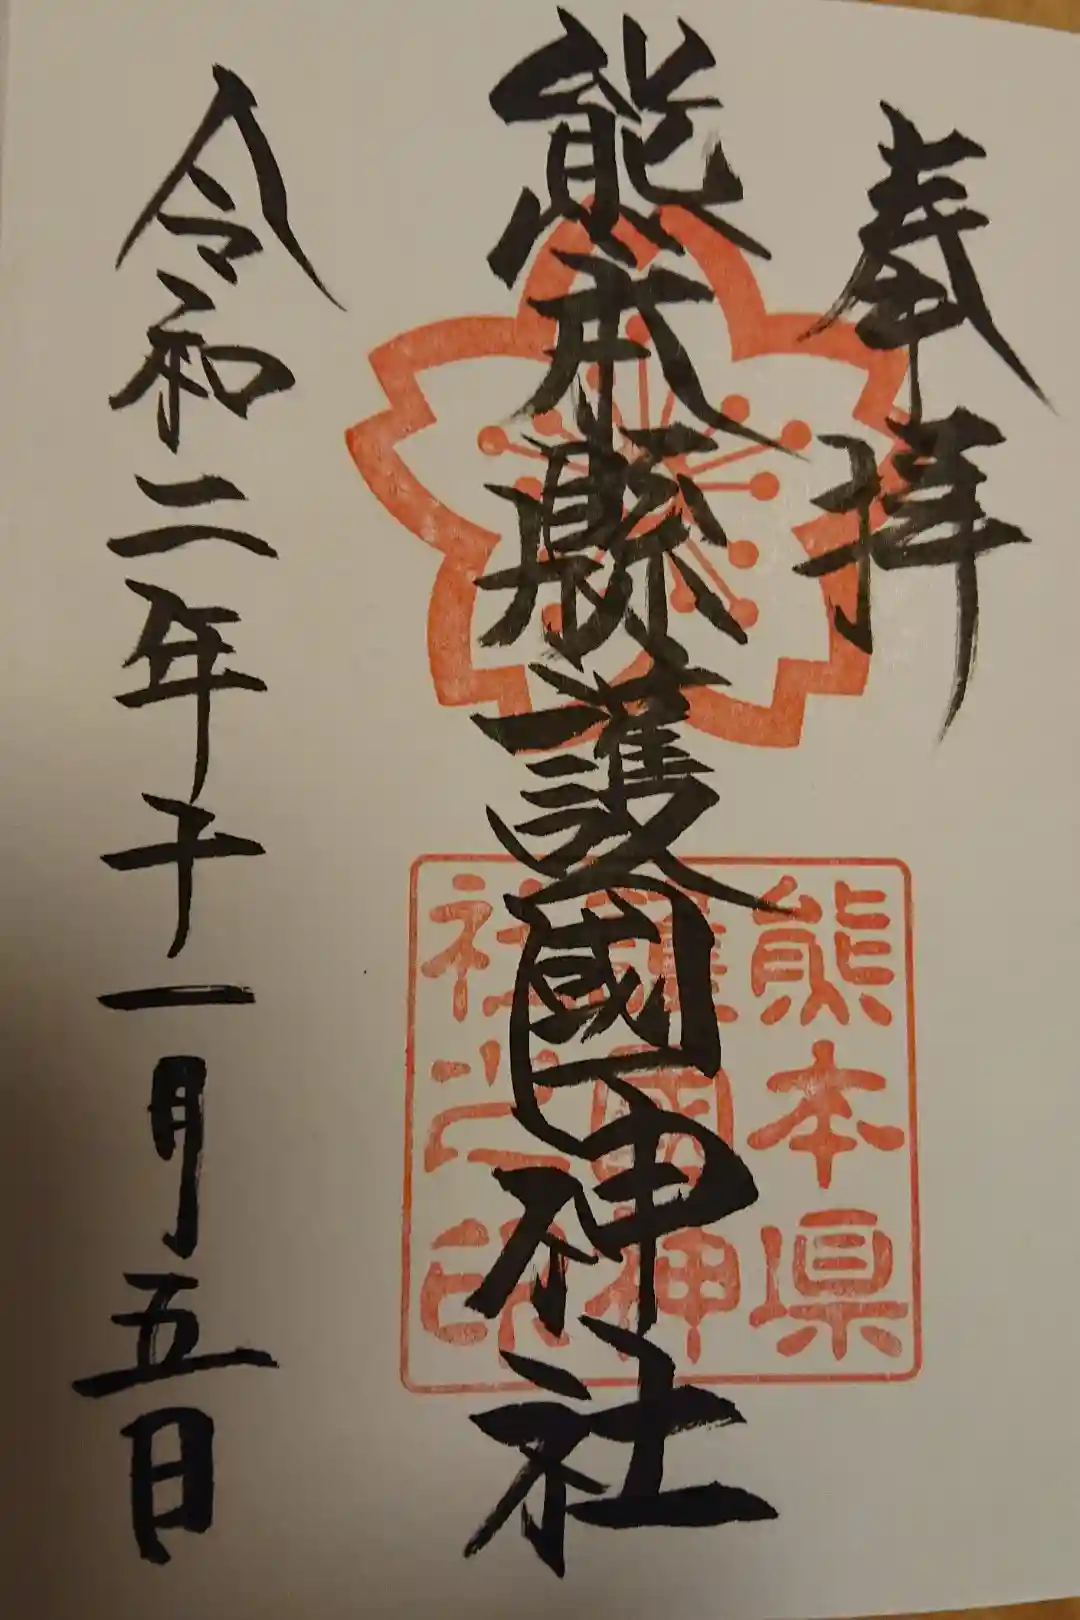 奉拝
熊本縣護國神社
令和二年十一月五日
熊本県
護國神
社之印